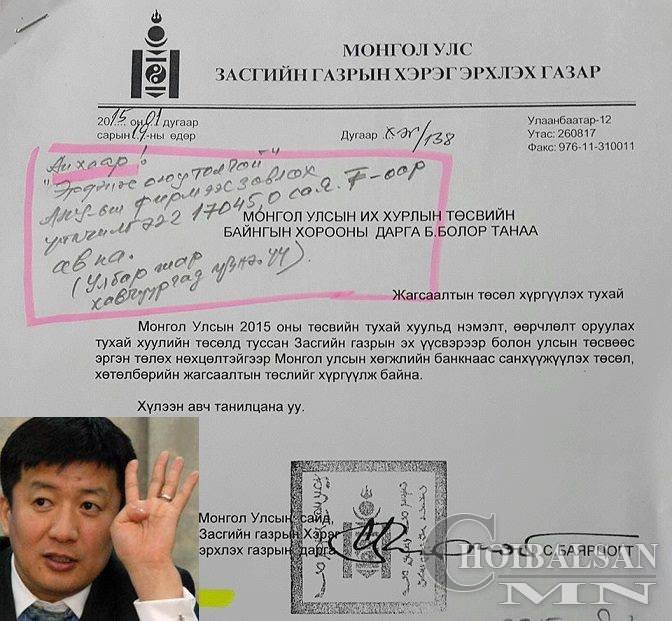 МОНГОЛ УЛС
ЗАСГИЙН ГАЗРЫН ХЭРЭГ ЭРХЛЭХ ГАЗАР
2015 оны 01 дугаар
сарын 19-ны өдөр
Дугаар ХЭГ/138
Улаанбаатар-12
Утас: 260817
Факс: 976-11-310011
Анхаар!
"Эрдэнэс оюу толгой"
АНУ-ын фирмээс зөвлөх
үйлчилгээ 17045,0 сая ₮-өөр
авна.
(Улбар шар
хавчуургад үзнэ үү).
МОНГОЛ УЛСЫН ИХ ХУРЛЫН ТӨСВИЙН
БАЙНГЫН ХОРООНЫ ДАРГА Б.БОЛОР ТАНАА
Жагсаалтын төсөл хүргүүлэх тухай
Монгол Улсын 2015 оны төсвийн тухай хуульд нэмэлт, өөрчлөлт оруулах
тухай хуулийн төсөлд туссан Засгийн газрын эх үүсвэрээр болон улсын төсвөөс
эргэн төлөх нөхцөлтэйгээр Монгол улсын хөгжлийн банкнаас санхүүжүүлэх төсөл,
хөтөлбөрийн жагсаалтын төслийг хүргүүлж байна.
Хүлээн авч танилцана уу.
Монгол Улсын сайд,
Засгийн газрын Хэрэг
эрхлэх газрын дарга
С.БАЯРЦОГТ
CHOIBALSAN
MN